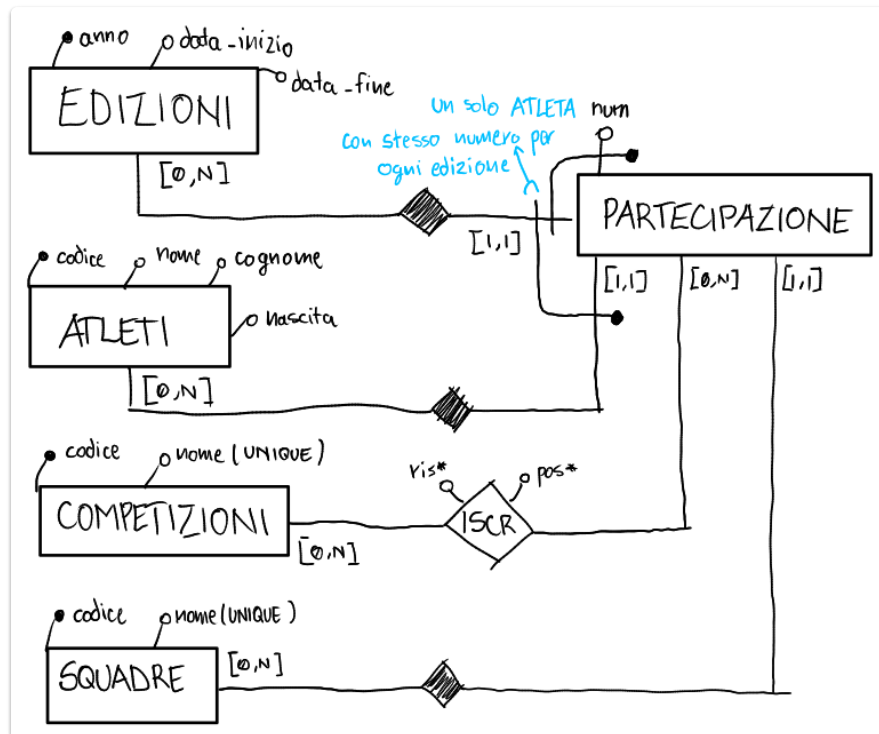 anno
data_inizio
data_fine
EDIZIONI
[0,N]
un solo ATLETA
con stesso numero per
ogni edizione
num
[1,1]
PARTECIPAZIONE
[1,1]
[0,N]
[1,1]
codice
nome
cognome
nascita
ATLETI
[0,N]
codice
nome (UNIQUE)
COMPETIZIONI
[0,N]
ris*
pos*
ISCR
codice
nome (UNIQUE)
SQUADRE
[0,N]